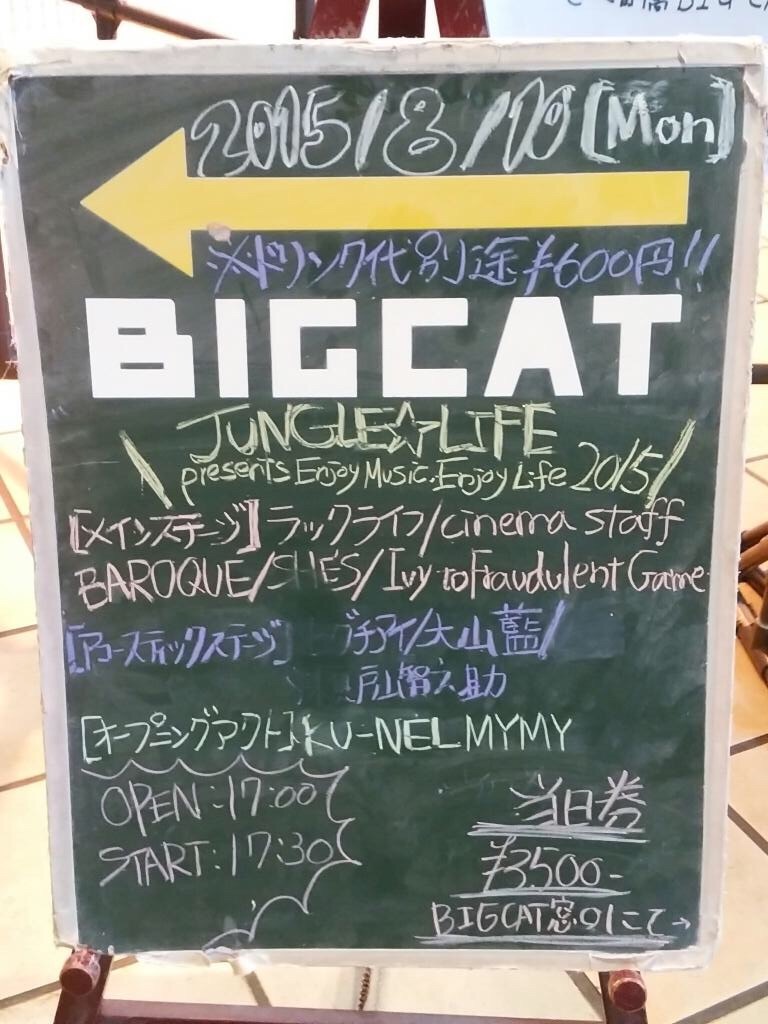 2015/8/10 [Mon]
※ドリンク代別途¥600円!!
BIGCAT
JUNGLE☆LIFE
presents Enjoy Music, Enjoy Life 2015
[メインステージ] ラックライフ/cinema staff
BAROQUE/SHE'S/Ivy to Fraudulent Game
[アコースティックステージ] プチアイ/大山藍/
戸山智之助
[オープニングアクト] KU-NEL MYMY
OPEN:17:00
START:17:30
当日券
¥3,500-
BIGCAT窓口にて→